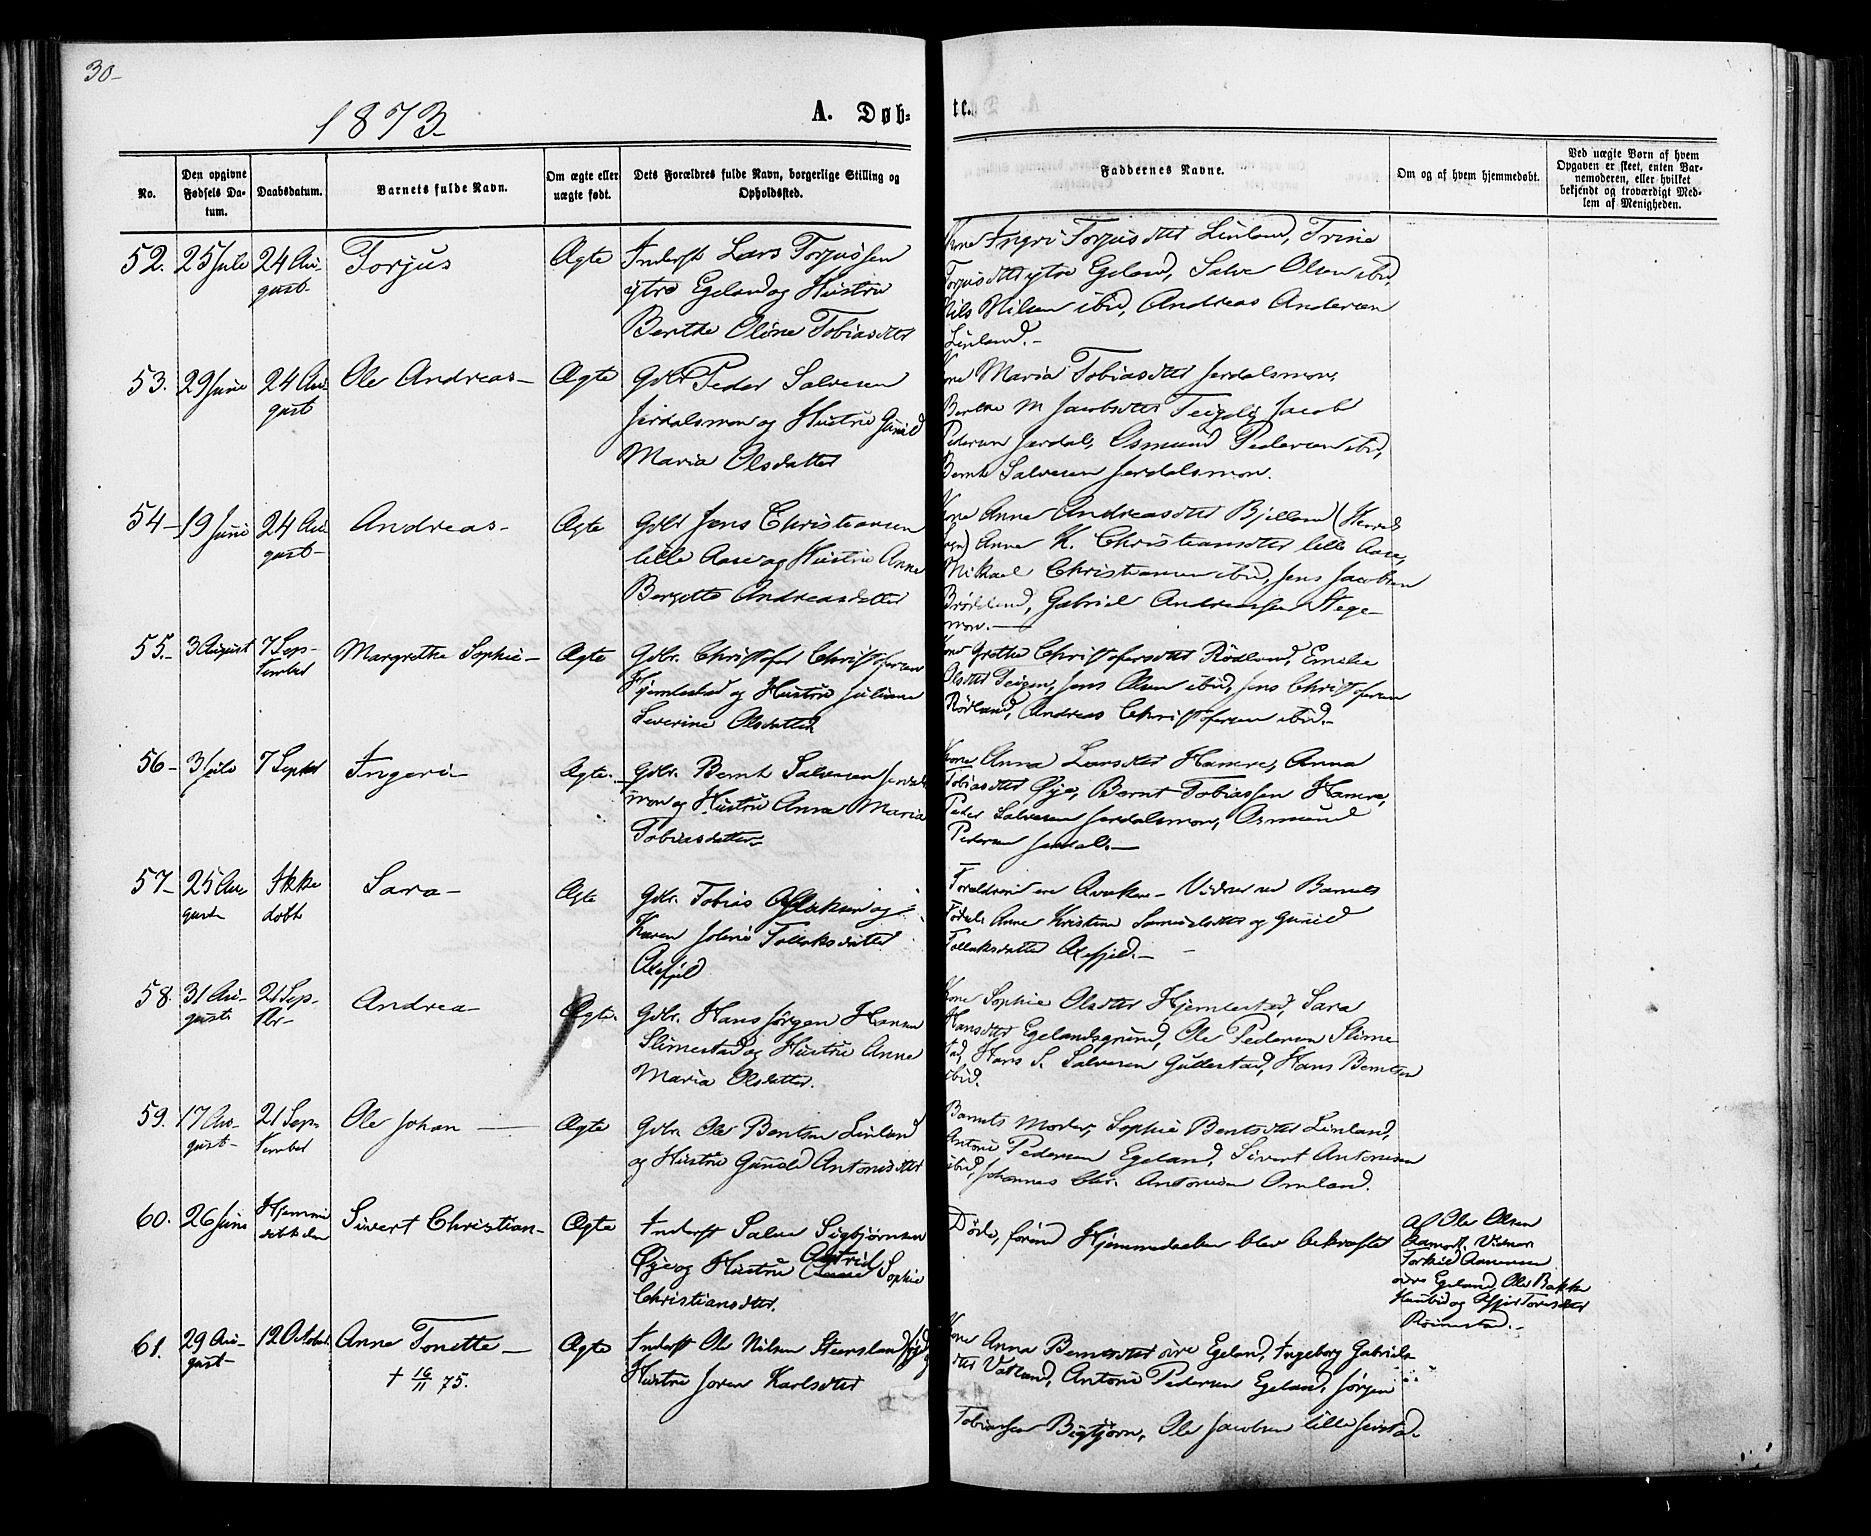 30-
1873
A. Døb-
te.
No.
Den opgivne Fødsels Da-
tum.
Daabsdatum.
Barnets fulde Navn.
Om ægte eller
uægte født.
Dets Forældres fulde Navn, borgerlige Stilling og
Opholdssted.
Faddernes Navne.
Om og af hvem hjemmedøbt.
Ved uægte Børn af hvem
Opgaven er skeet, enten Bar-
nemoderen, eller hvilket
bekjendt og troværdigt Med-
lem af Menigheden.
52. 25 Juli 24 Au-
gust-
Torjus
Ægte
Inderst Lars Torjussen
ytre Egeland og Hustru
Berthe Oline Tobiasdtr
Kone Ingri Torjusdtr Linland, Trine
Torjusdtr ytre Egeland, Salve Olsen ibid,
Nils Nilsen ibid, Andreas Andersen
Linland.-
53. 29 Juni 24 Au-
gust
Ole Andreas-
Ægte
Gdbr Peder Salvesen
Jerdalsmon og Hustru Gunild
Maria Olsdatter
Kone Maria Tobiasdtr Jerdalsmon,
Berthe M Jacobsdtr Jacob
Pedersen Jerdal, Osmund Pedersen ibid,
Bernt Salvesen Jerdalsmon.
54- 19 Juni 24 Au-
gust-
Andreas-
Ægte
Gdbr Jens Christiansen
lille Aase og Hustru Anne
Bergitte Andreasdatter
Kone Anne Andreasdtr Bjelland
Anne K. Christiansdtr lille Aase,
Mikael Christiansen ibid, Jens Jacobsen
Gabriel Andreassen Stege-
mon.-
55.- 3 August 7 Sep-
tember
Margrethe Sophie-
Ægte
Gdbr. Christofer Christofersen
Hjemlestad og Hustru Juliane
Severine Olsdatter
Kone Grethe Christofersdtr Rødland, Emelie
Olsdtr Teigen, Jens Olsen ibid, Jens Christofersen
Rødland, Andreas Christofersen ibid.-
56- 3 Juli 7 Septbr
Ingeri-
Ægte.
Gdbr. Bernt Salvesen Jerdals-
mon og Hustru Anna Maria
Tobiasdatter-
Kone Anna Larsdtr Hamre, Anna
Tobiasdtr Øye, Bernt Tobiassen Hamre,
Peder Salvesen Jerdalsmon, Osmund
Pedersen Jerdal.-
57- 25 Au-
gust-
Ikke
døbt
Sara-
Ægte
Gdbr. Tobias Aslaksen og
Karen Tollaksdatter
Forældrene ere Qvækere- Vidner ved Barnets
Fødsel: Anne Kristine Samuelsdtr og Gunild
Tollaksdatter
58. 31 Au-
gust
21 Sep-
tbr-
Andrea-
Ægte.
Gdbr. Hans Jørgen Hansen
Slimestad og Hustru Anne
Maria Olsdatter.
Kone Sophie Olsdtr Hjemlestad, Sara
Hansdtr Egelandsgrund, Ole Pedersen Slime-
stad, Hans S. Salvesen Gullestad, Hans Berntsen
ibid.
59. 17 Au-
gust-
21 Sep-
tember
Ole Johan-
Ægte
Gdbr. Ole Bentsen Linland
og Hustru Gunild Antonisdtr
Barnets Moder, Sophie Bentsdtr Linland,
Antoni Pedersen Egeland, Sivert Antonisen
ibid, Johannes Chr. Antonisen Omland.
60. 26 Juni Hjemme-
døbt den
Sivert Christian-
Ægte
Inderst Salve Sigbjørnsen
Øye og Hustru Astrid Sophie
Christiansdtr.
Døde, førend Hjemmedaaben blev bekræftet
af Ole Olsen
Vidner
Torkild Aanensen
øvre Egeland, Ole Bakke
og
61. 29 Au-
gust-
12 October
Anne Tonette-
† 16/11 75.
Ægte
Inderst Ole Nilsen og
Hustru Joren Karlsdtr
Kone Anna Berntsdtr øvre Egeland, Ingeborg Gabriels-
dtr Vatland, Antoni Pedersen Egeland, Jørgen
Tobiassen Bigtjørn, Ole Jacobsen lille